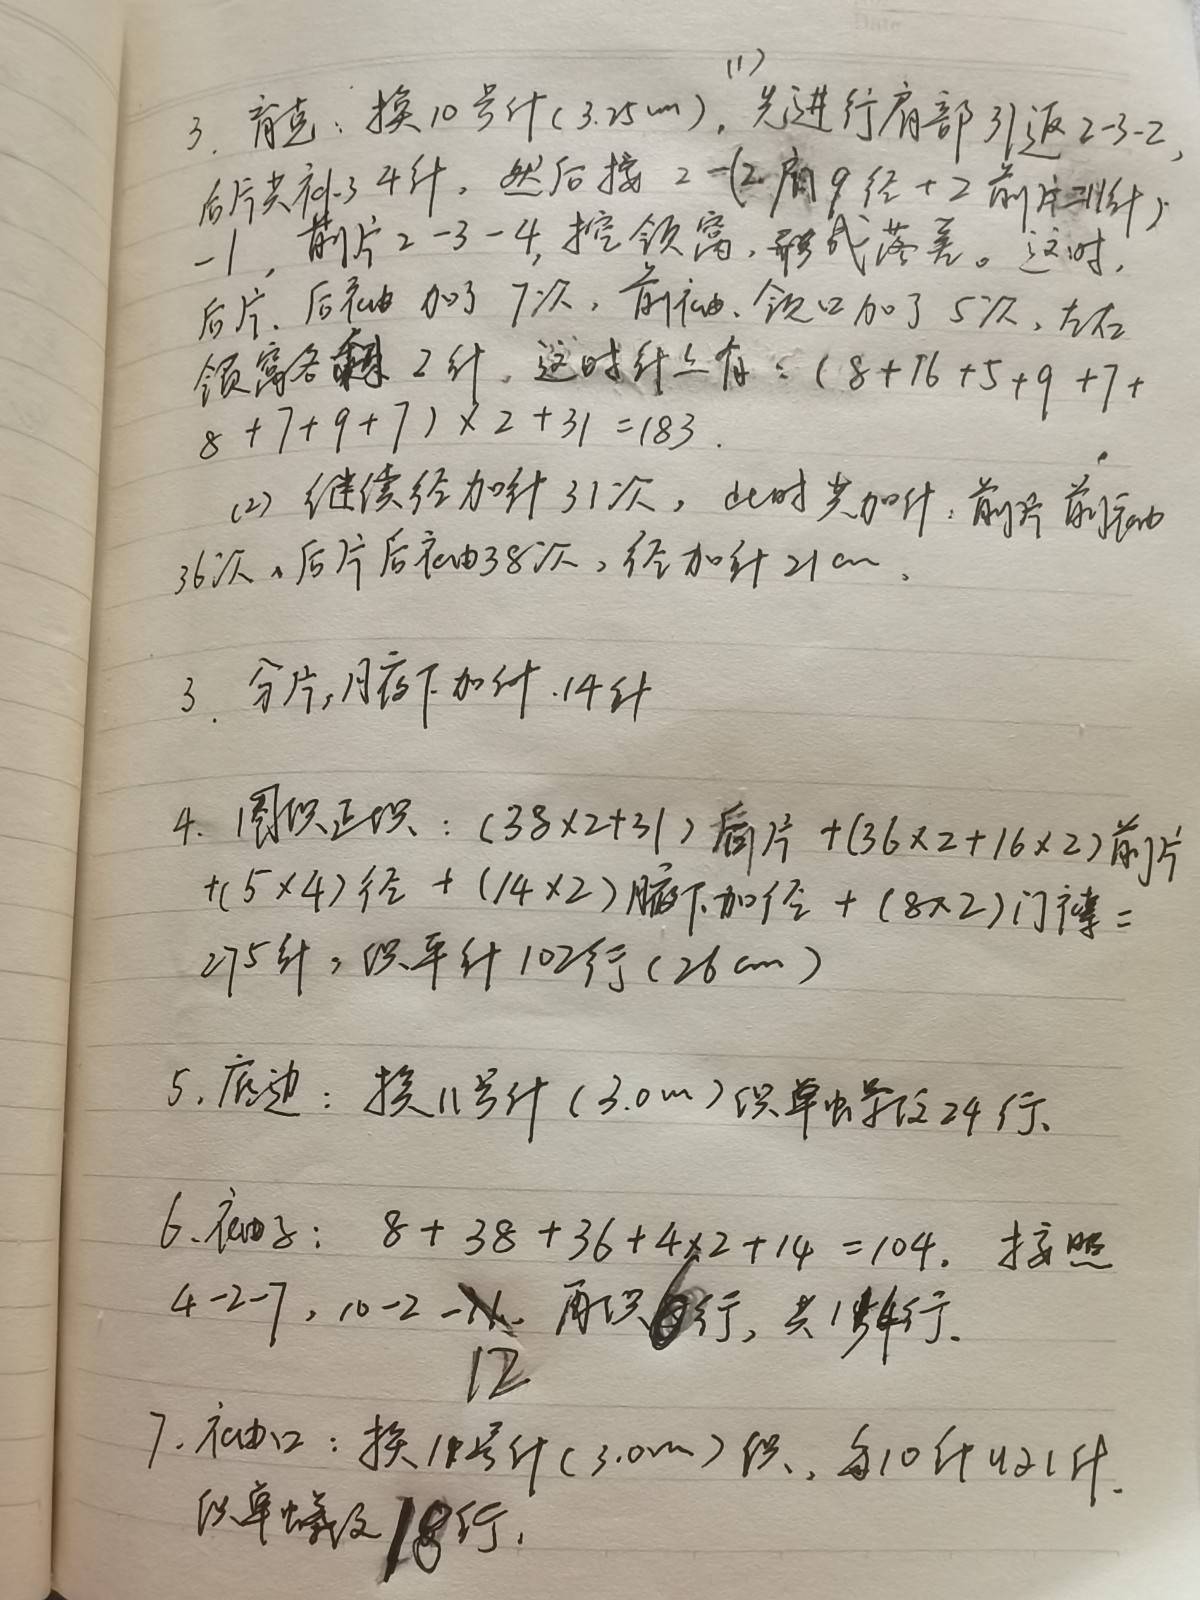 Date
(1)
3. 育克：换10号针(3.25cm)，先进行肩部引返2-3-2，
后片共补34针，然后接2-(2肩9径+2前片=11针)
-1，前片2-3-4，挖领窝，形成落差。这时，
后片、后衣袖加了7次，前袖、领口加了5次，左右
领窝各 2针，这时针上有：(8+16+5+9+7+
8+7+9+7)×2+31=183.
(2)继续径加针31次，此时共加针：前片前袖
36次、后片后袖38次，径加针21cm。
3. 分片，腋下加针.14针
4. 圈织正织：(38×2+31)后片+(36×2+16×2)前片
+(5×4)径+(14×2)腋下加径+(8×2)门襟=
275针，织平针102行(26cm)
5. 底边：换11号针(3.0m)织草 24行.
6. 袖子：8+38+36+4×2+14=104. 按照
4-2-7，10-2- 再织6行，共 行.
12
7. 袖口：换 号针(3.0m)织，每10针收1针.
织草 18行.